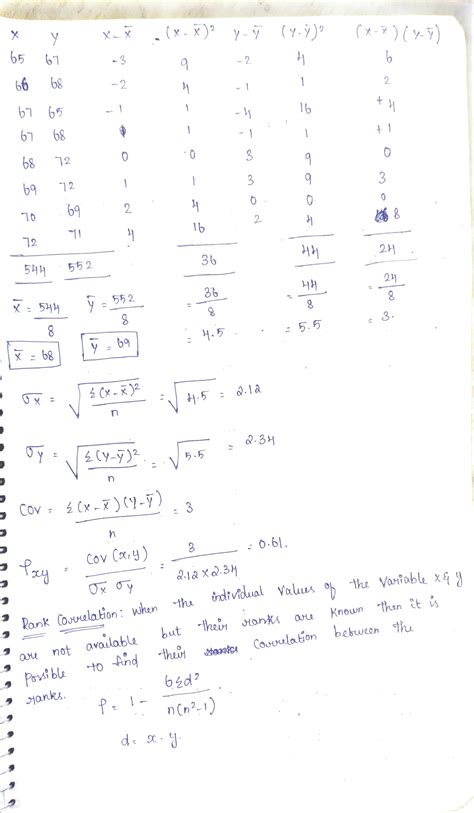 x y x - x̄ (x - x̄)² y - ȳ (y - ȳ)² (x - x̄)(y - ȳ)
65 67 -3 9 -2 4 6
66 68 -2 4 -1 1 2
67 65 -1 1 -4 16 +4
67 68 1 -1 1 +1
68 72 0 0 3 9 0
69 72 1 1 3 9 3
70 69 2 4 0 0 0
72 71 4 16 2 4 8
544 552 36 44 24
x̄ = 544/8 ȳ = 552/8 = 36/8 = 44/8 = 24/8
x̄ = 68 ȳ = 69 = 4.5 = 5.5 = 3.
σx = √(Σ(x - x̄)²/n) = √4.5 = 2.12
σy = √(Σ(y - ȳ)²/n) = √5.5 = 2.34
Cov = Σ(x - x̄)(y - ȳ)/n = 3
ρxy = Cov(x,y)/(σx σy) = 3/(2.12 x 2.34) = 0.61.
Rank Correlation: when the individual values of the variable x & y
are not available but their ranks are known then it is
possible to find their correlation between the
ranks.
ρ = 1 - 6Σd²/(n(n²-1))
d = x - y.